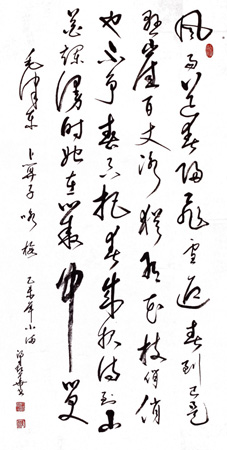 风雨送春归飞雪迎春到已是
悬崖百丈冰犹有花枝俏俏
也不争春只把春来报待到山
花烂漫时她在丛中笑
毛泽东 卜算子 咏梅 乙未年